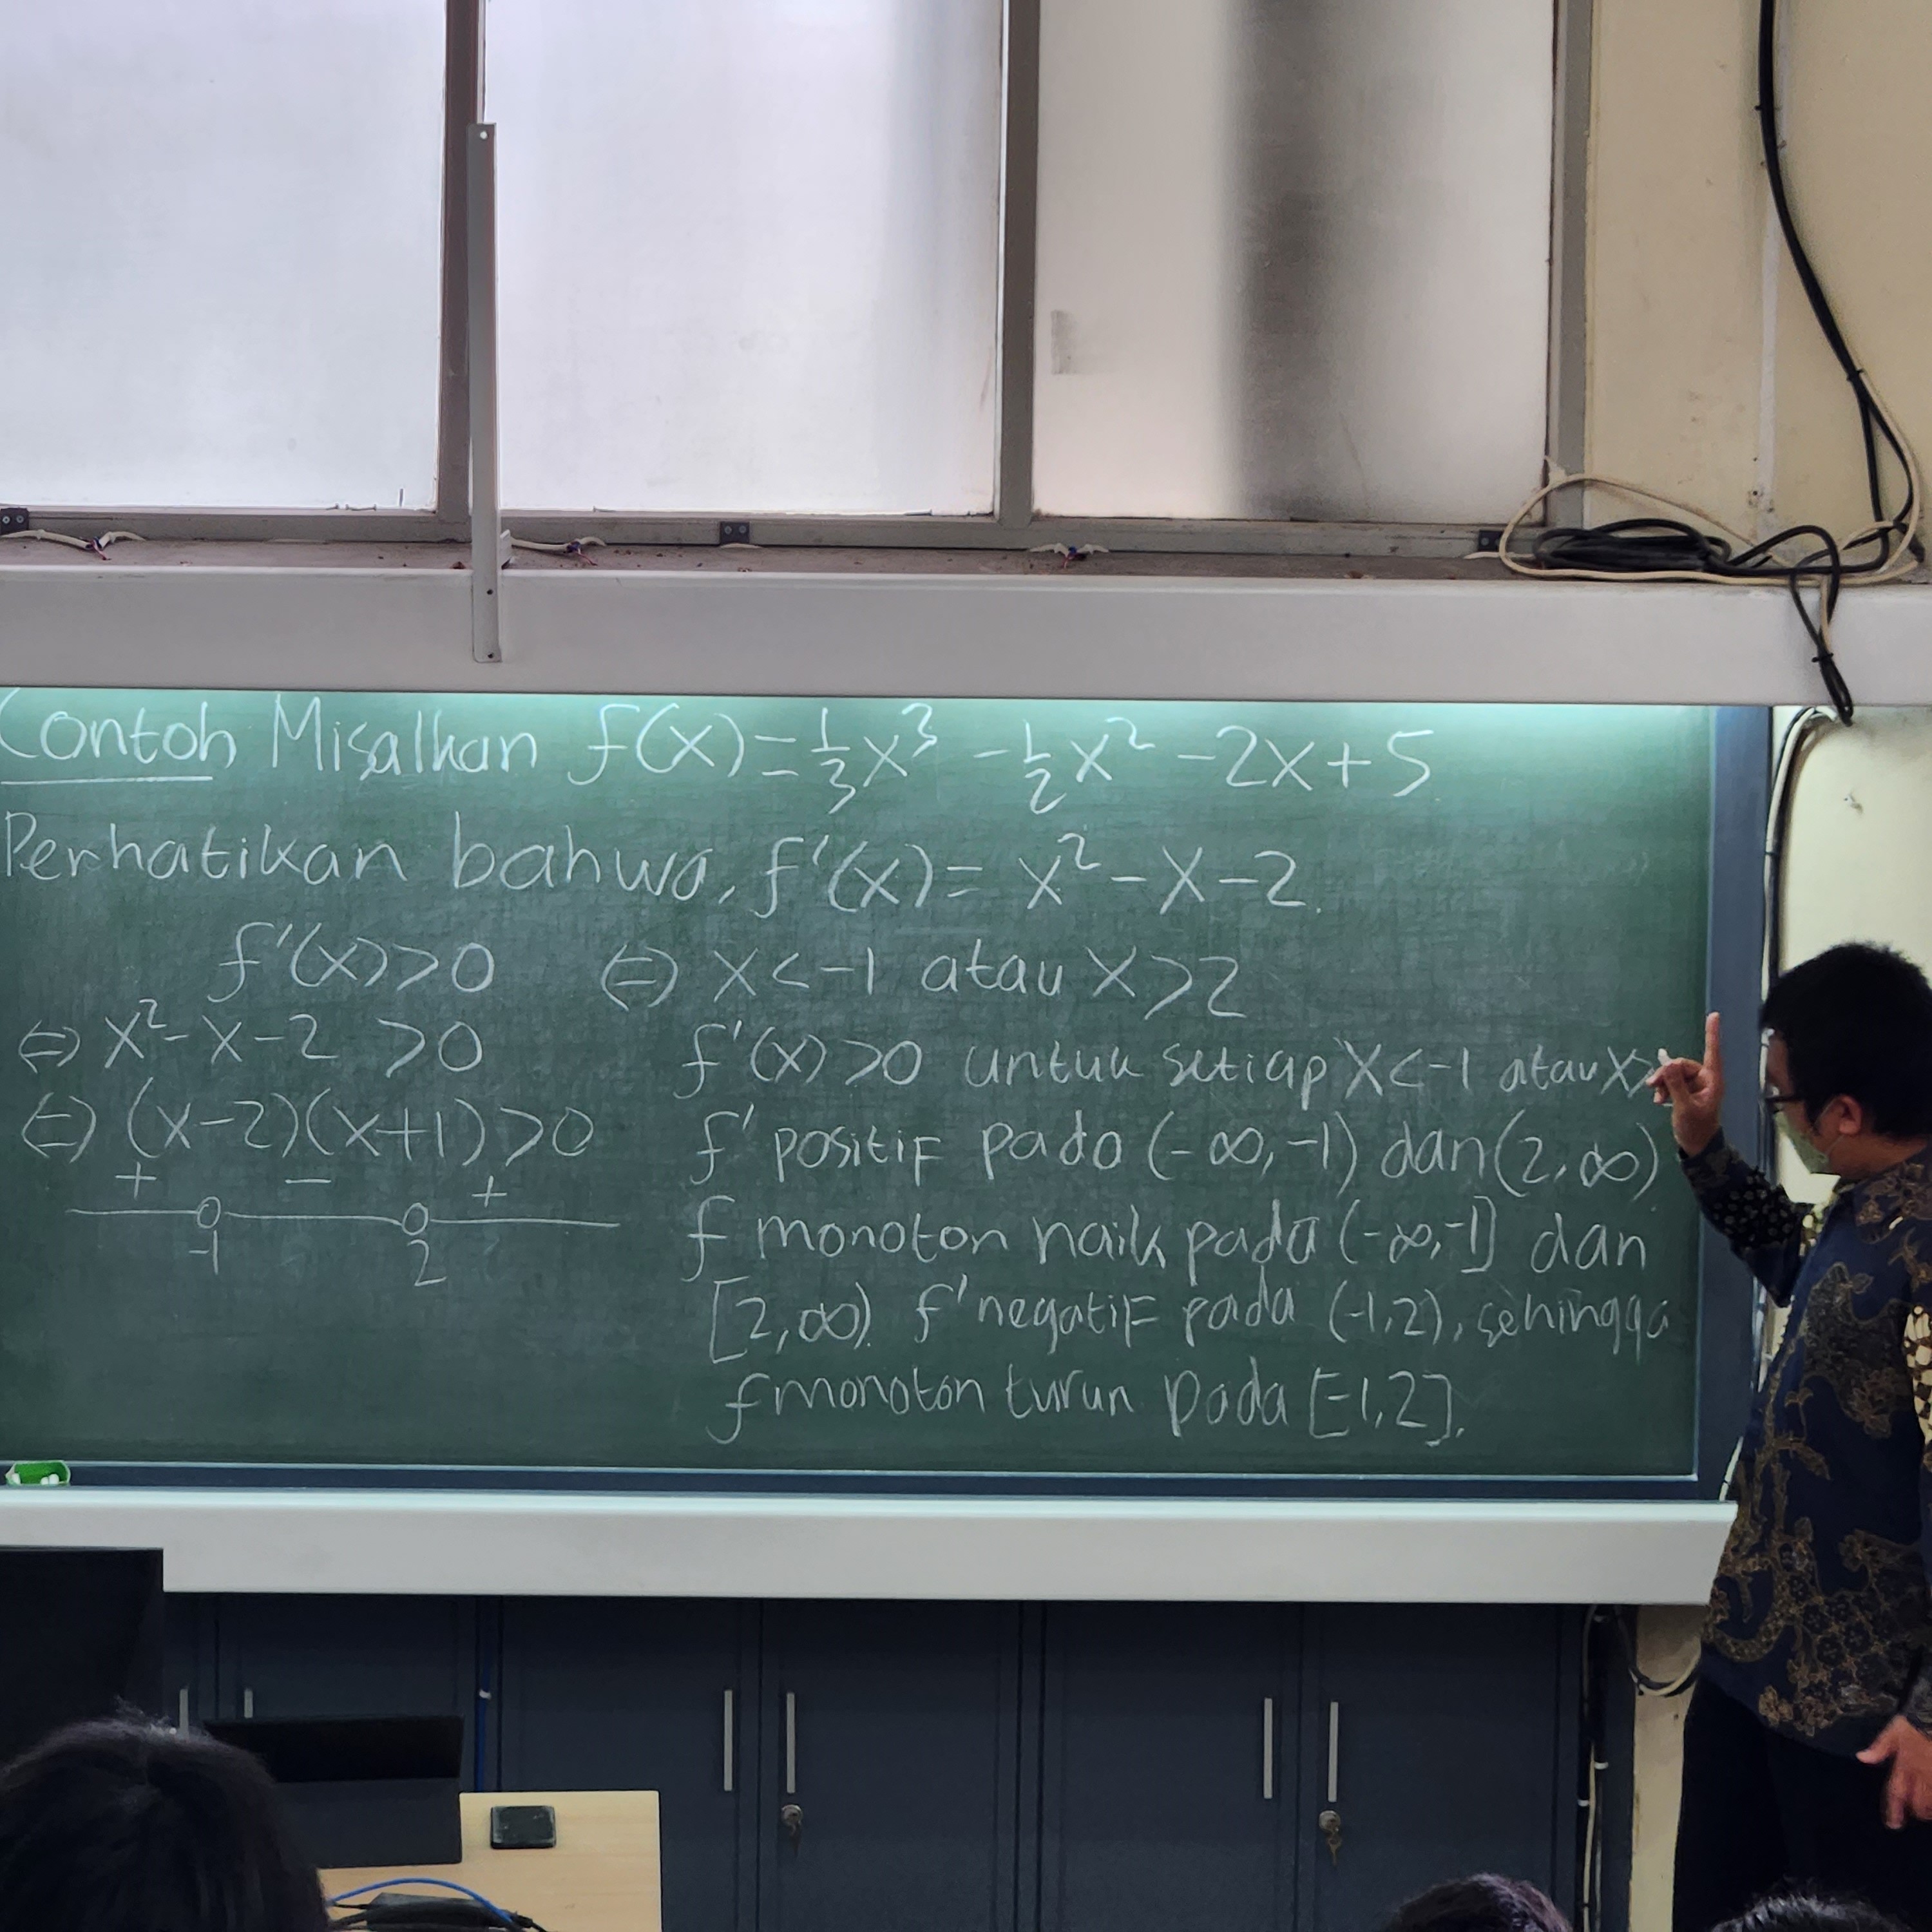 Contoh Misalkan f(x)=1/3x³ -1/2x² -2x+5
Perhatikan bahwa, f'(x)= x²-x-2.
f'(x)>0
⇔ x²-x-2 >0
⇔ (x-2)(x+1)>0
+ - +
-1 2
⇔ x<-1 atau x>2
f'(x)>0 untuk setiap x<-1 atau x>
f' positif pada (-∞,-1) dan (2,∞)
f monoton naik pada (-∞,-1] dan
[2,∞). f' negatif pada (-1,2), sehingga
f monoton turun pada [-1,2].